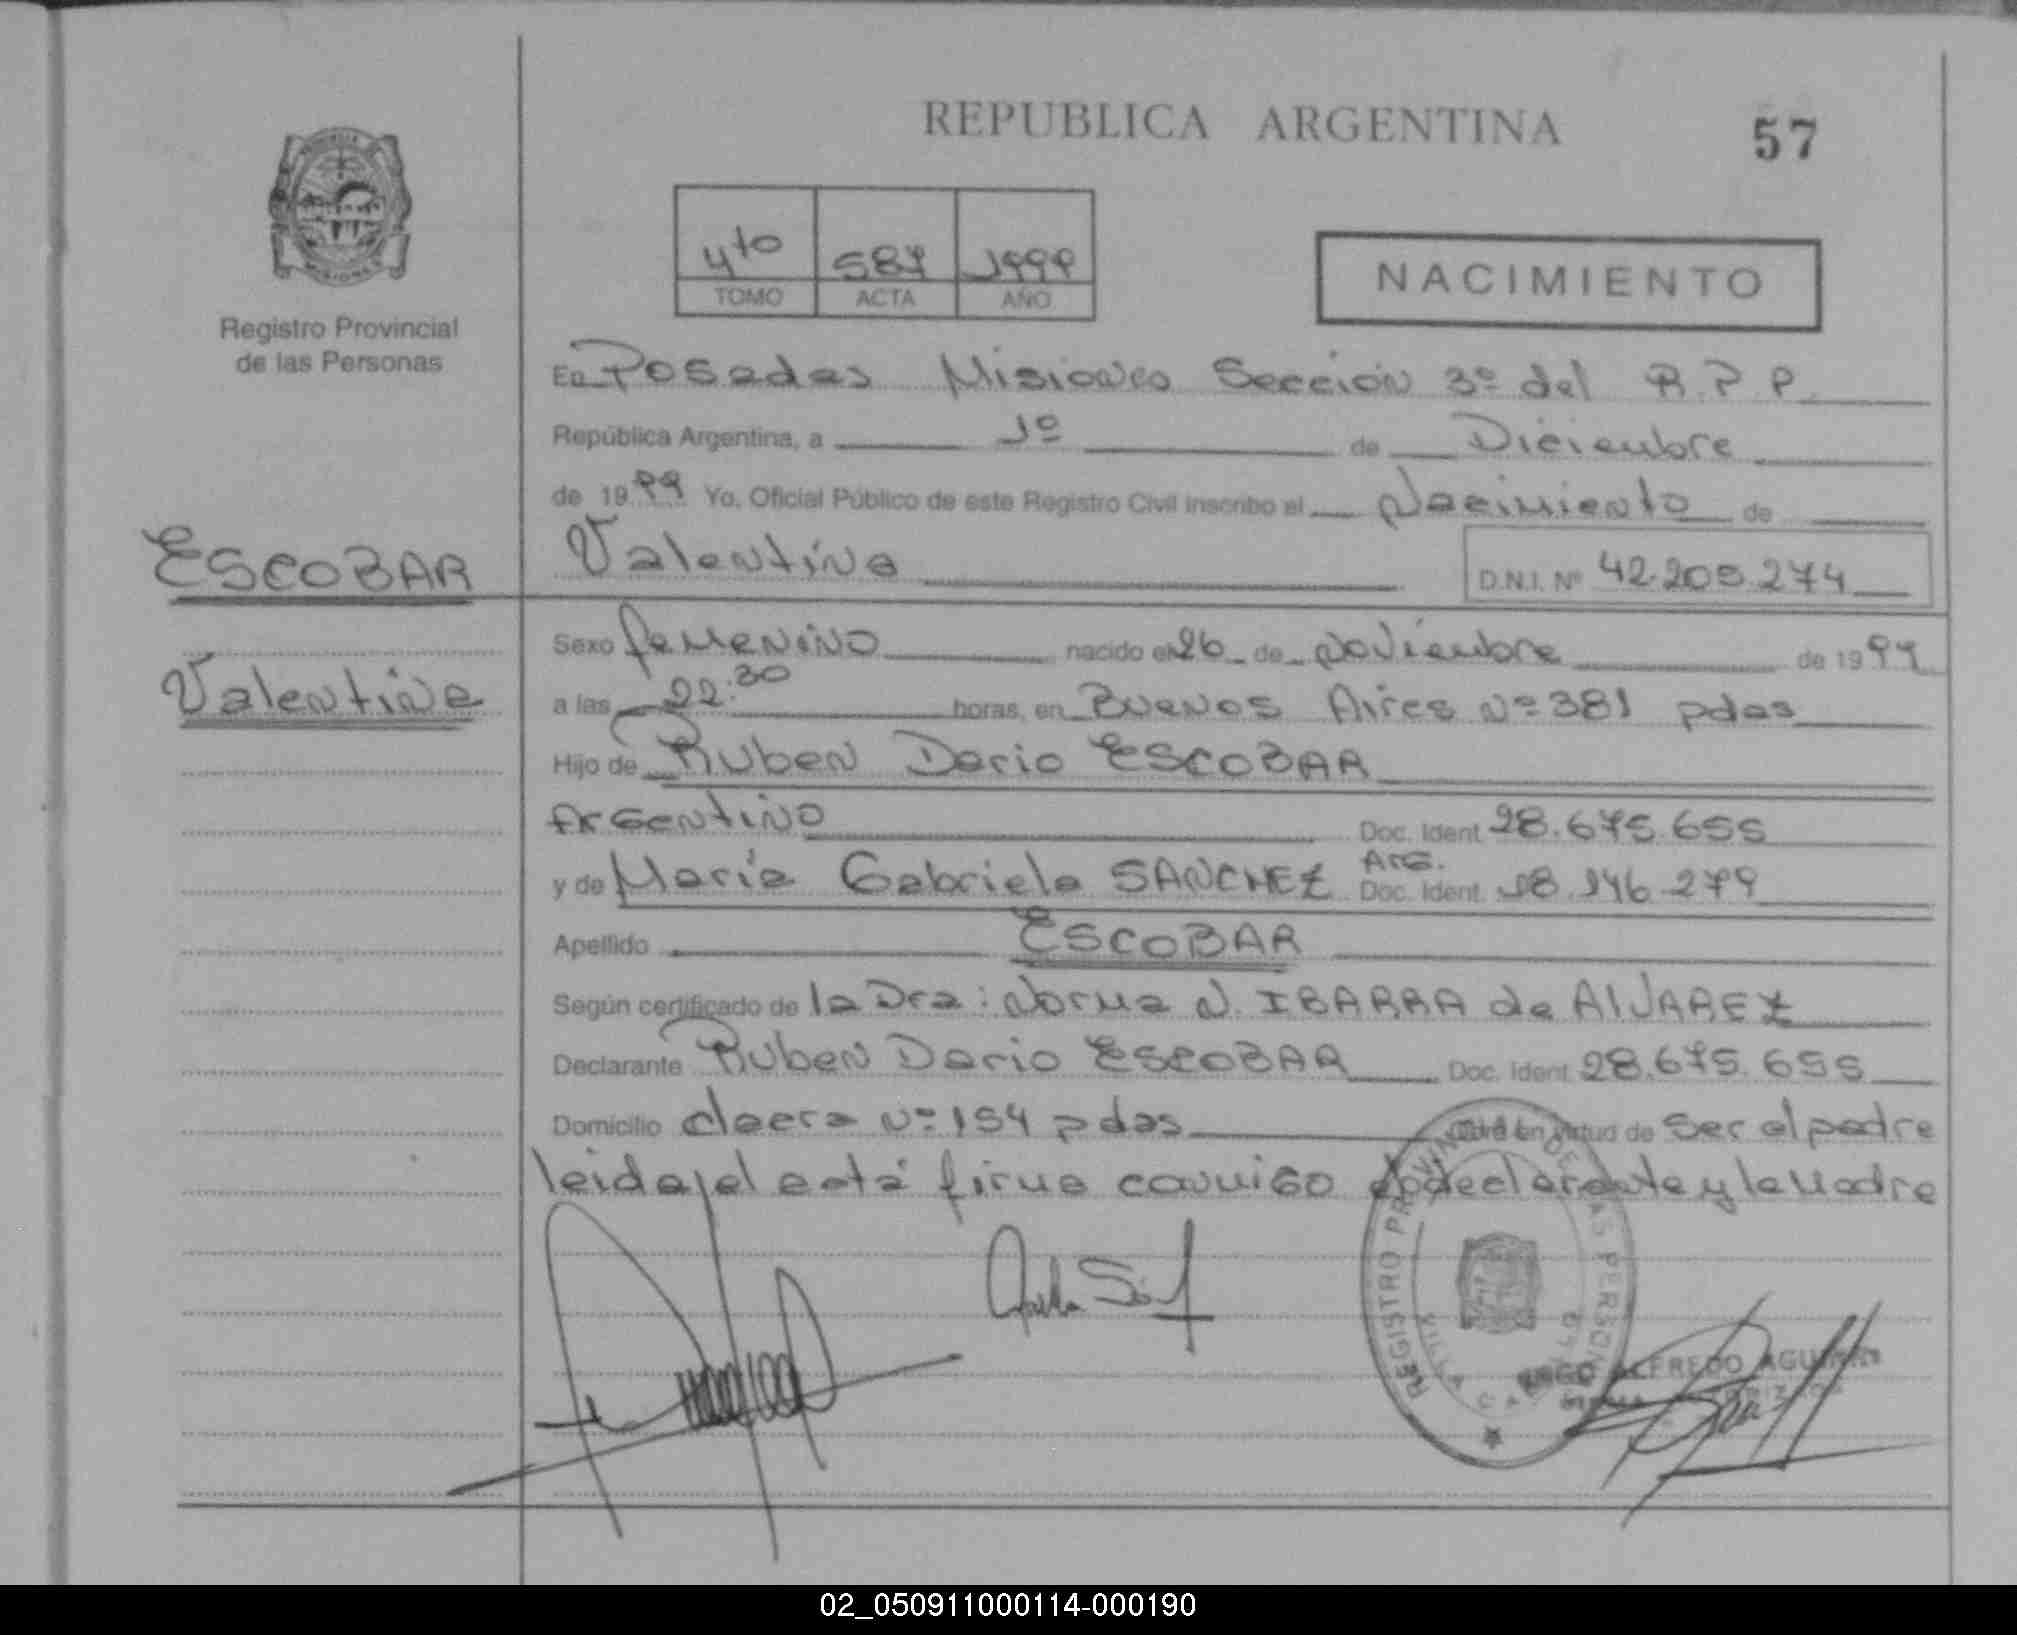 REPUBLICA ARGENTINA
57
4to 587 1999
TOMO ACTA AÑO
NACIMIENTO
Registro Provincial
de las Personas
En Posadas Misiones Sección 3º del R.P.P.
República Argentina, a 1º de Diciembre
de 1999 Yo, Oficial Público de este Registro Civil inscribo el Nacimiento de
ESCOBAR
Valentina
D.N.I. Nº 42.205.274
Sexo femenino nacido el 26 de Noviembre de 1999
Valentina
a las 22:30 horas, en Buenos Aires Nº 381 pdas
Hijo de Ruben Dario ESCOBAR
Argentino Doc. Ident. 28.675.655
y de María Gabriela SANCHEZ Arg. Doc. Ident. 18.146.279
Apellido ESCOBAR
Según certificado de la Dra: Norma N. IBARRA de ALVAREZ
Declarante Ruben Dario ESCOBAR Doc. Ident. 28.675.655
Domicilio claera Nº 154 pdas en virtud de ser el padre
leida el acta firma conmigo declarante y la Madre
REGISTRO PROVINCIAL DE LAS PERSONAS
ALFREDO
02_050911000114-000190